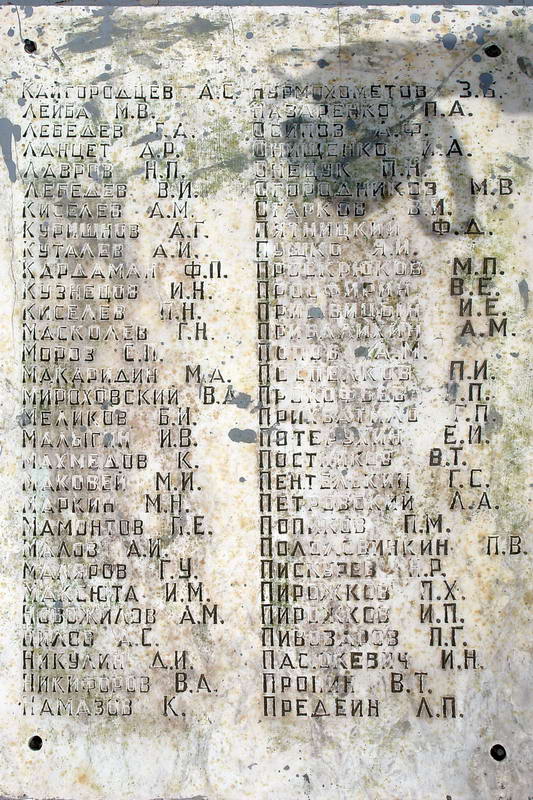 КАЙГОРОДЦЕВ А.С.
ЛЕЙБА М.В.
ЛЕБЕДЕВ Г.А.
ЛАНЦЕТ А.Р.
ЛАВРОВ Н.П.
ЛЕБЕДЕВ В.И.
КИСЕЛЕВ А.М.
КУРИШНОВ А.Г.
КУТАЛЕВ А.И.
КАРДАМАН Ф.П.
КУЗНЕЦОВ И.Н.
КИСЕЛЕВ П.Н.
МАСКОЛЕВ Г.Н.
МОРОЗ
МАКАРИДИН М.А.
МИРОХОВСКИЙ В.А.
МЕЛИКОВ Б.И.
МАЛЫГИН И.В.
МАХМЕДОВ К.
МАКОВЕЙ М.И.
МАРКИН М.Н.
МАМОНТОВ П.Е.
МАЛОЗ А.И.
МАЛЯРОВ Г.У.
МАКСЮТА И.М.
НОВОЖИЛОВ А.М.
А.С.
НИКУЛИН Д.И.
НИКИФОРОВ В.А.
НАМАЗОВ К.
НУРМОХОМЕТОВ З.Б.
НАЗАРЕНКО П.А.
ОСИПОВ А.Ф.
ОНИЩЕНКО И.А.
ОНЕЩУК П.Н.
ОГОРОДНИКОВ М.В.
СТАРКОВ В.И.
ПЯТНИЦКИЙ Ф.Д.
ПУШКО Я.И.
ПРОСКРЮКОВ М.П.
ПРОСФИРИН В.Е.
И.Е.
ПРИВАЛИХИН А.М.
ПОПОВ А.М.
ПОСПЕЛКОВ П.И.
ПРОКОФЬЕВ
ПРИХВАТИЛО Г.П.
ПОТЕРУХИН Е.И.
ПОСТНИКОВ В.Т.
Г.С.
ПЕТРОВСКИЙ Л.А.
П.М.
ПОЛОЛОВИНКИН П.В.
ПИСКУРЕВ Н.Р.
ПИРОЖКОВ П.Х.
ПИРОЖКОВ И.П.
ПИВОЗДРОВ П.Г.
ПАСЮКЕВИЧ И.Н.
ПРОНИН В.Т.
ПРЕДЕИН Л.П.